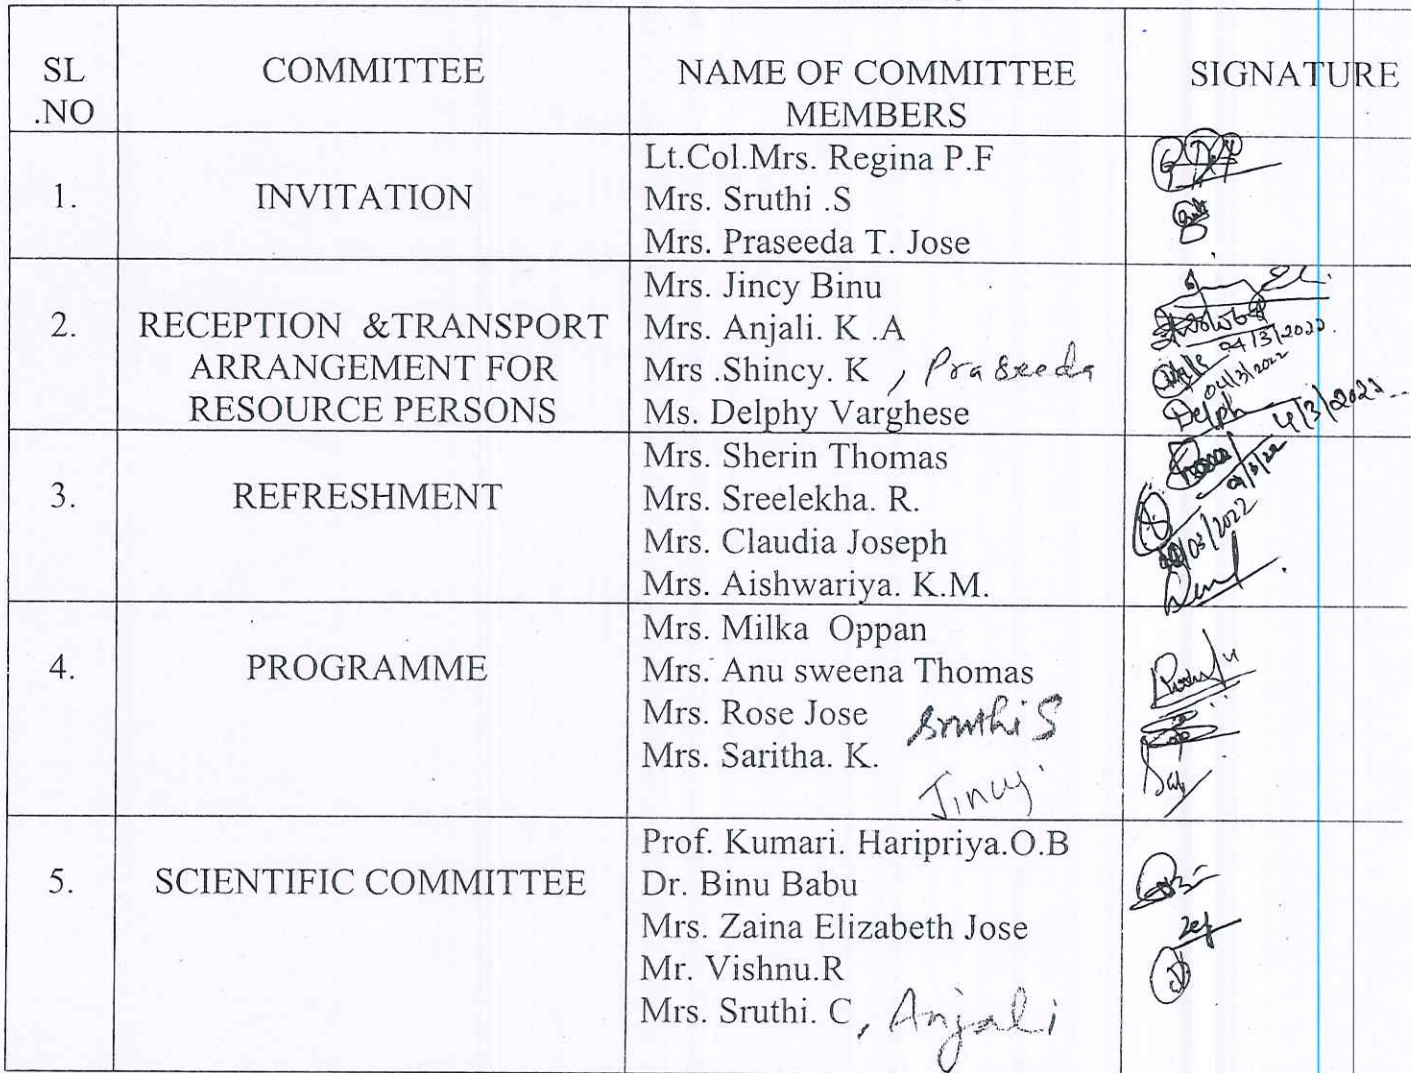 SL .NO
COMMITTEE
NAME OF COMMITTEE MEMBERS
SIGNATURE
1.
INVITATION
Lt.Col.Mrs. Regina P.F
Mrs. Sruthi .S
Mrs. Praseeda T. Jose
2.
RECEPTION &TRANSPORT
ARRANGEMENT FOR
RESOURCE PERSONS
Mrs. Jincy Binu
Mrs. Anjali. K .A
Mrs .Shincy. K , Praseeda
Ms. Delphy Varghese
04/3/2022.
04/3/2022
Delph
4/3/2022
3.
REFRESHMENT
Mrs. Sherin Thomas
Mrs. Sreelekha. R.
Mrs. Claudia Joseph
Mrs. Aishwariya. K.M.
/03/2022
4.
PROGRAMME
Mrs. Milka Oppan
Mrs. Anu sweena Thomas
Mrs. Rose Jose Sruthi S
Mrs. Saritha. K.
Jincy
5.
SCIENTIFIC COMMITTEE
Prof. Kumari. Haripriya.O.B
Dr. Binu Babu
Mrs. Zaina Elizabeth Jose
Mr. Vishnu.R
Mrs. Sruthi. C , Anjali